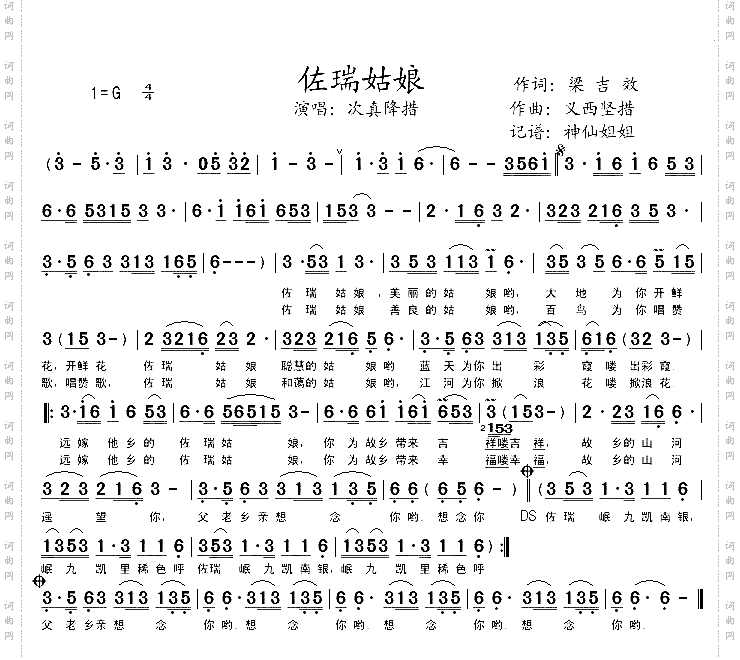 佐瑞姑娘
1=G 4/4
作词：梁吉效
演唱：次真降措
作曲：义西坚措
记谱：神仙妞妞
(3 - 5·3 | 1 3· 053 32 | 1 - 3 - | 1·3 1 6· | 6 - - 3561 | 3· 1 6 1 6 5 3 |
6·6 5315 3 3· | 6·1 161 653 | 153 3 - - | 2· 1 6 3 2· | 323 216 3 5 3· |
3·5 6 3 313 165 | 6 - - -) | 3·53 1 3· | 3 5 3 113 1 6· | 35 3 5 6·6 5 15 |
佐瑞姑娘，美丽的姑娘哟，大地为你开鲜
佐瑞姑娘 善良的姑娘哟，百鸟为你唱赞
3 (1 5 3 -) | 2 3216 23 2· | 323 216 5 6· | 3·5 63 313 135 | 616 (32 3 -) |
花，开鲜花 佐瑞姑娘 聪慧的姑娘哟 蓝天为你出彩霞喽 出彩霞.
歌，唱赞歌，佐瑞姑娘 和蔼的姑娘哟，江河为你掀浪花喽 掀浪花.
‖: 3·16 1 6 53 | 6·6 56515 3 - | 6·6 61 161 653 | 3 (153 -) | 2· 23 16 6· |
2153
远嫁他乡的佐瑞姑娘，你为故乡带来吉祥喽吉祥，故乡的山河
远嫁他乡的佐瑞姑娘，你为故乡带来幸福喽幸福，故乡的山河
3 2 3 2 1 6 3 - | 3·5 6 3 3 1 3 1 3 5 | 6·6 (6 5 6 -) | (3 5 3 1·3 1 1 6 |
遥望你，父老乡亲想念你哟.想念你 DS 佐瑞 岷九凯南银，
1353 1·3 11 6 | 353 1·3 11 6 | 1353 1·3 11 6) :‖
岷九凯里稀色呼 佐瑞 岷九凯南银，岷九凯里稀色呼
3·5 63 313 135 | 6·6 313 135 | 6·6 313 135 | 6·6 313 135 | 6·6 - ‖
父老乡亲想念你哟.想念你哟.想念你哟.想念你哟.